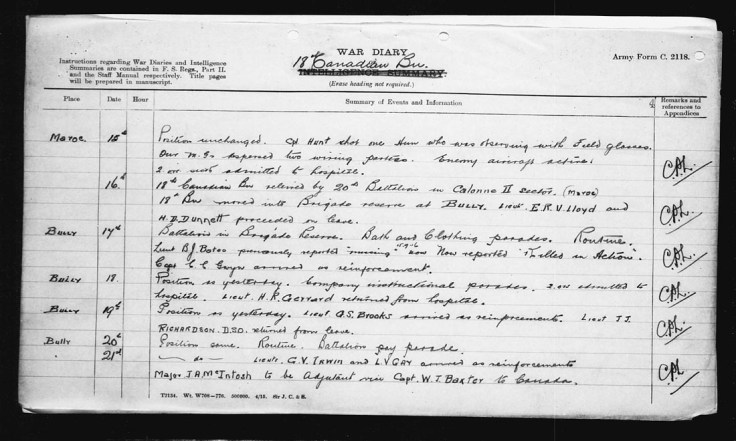 WAR DIARY
18th Canadian Bn.
INTELLIGENCE SUMMARY.
(Erase heading not required.)
Army Form C. 2118.
Instructions regarding War Diaries and Intelligence
Summaries are contained in F. S. Regs., Part II.
and the Staff Manual respectively. Title pages
will be prepared in manuscript.
Place Date Hour Summary of Events and Information Remarks and
references to
Appendices
4
Maroc 15th Position unchanged. Hunt shot one Hun who was observing with Field glasses.
Our M.Gs dispersed two wiring parties. Enemy aircraft active.
2 admitted to hospital.
16th 18th Canadian Bn relieved by 20th Battalion in Calonne II Sector. (Maroc)
18th Bn moved into Brigade reserve at BULLY. Lieut. E.R.V. Lloyd and
H.D. Dunnett proceeded on leave.
Bully 17th Battalion in Brigade Reserve. Bath and Clothing parades. Routine.
Lieut B.J. Bates previously reported "missing" now reported "Killed in Action".
Capt C.C. arrived as reinforcement.
Bully 18. Position as yesterday. Company instructional parades. 2 admitted to
hospital. Lieut. H.R. Gerrard returned from hospital.
Bully 19th Position as yesterday. Lieut A.S. Brooks arrived as reinforcements. Lieut J.I.
RICHARDSON. D.S.O. returned from leave.
Bully 20th Position same. Routine. Battalion pay parade.
" 21st — do — Lieuts. G.V. IRWIN and L.V. GAY arrived as reinforcements
Major J.A. McIntosh to be Adjutant vice Capt. W.T. Baxter to Canada.
C.P.L.
C.P.L.
C.P.L.
C.P.L.
C.P.L.
C.P.L.
T2134. Wt. W708—776. 500000. 4/15. Sir J. C. & S.